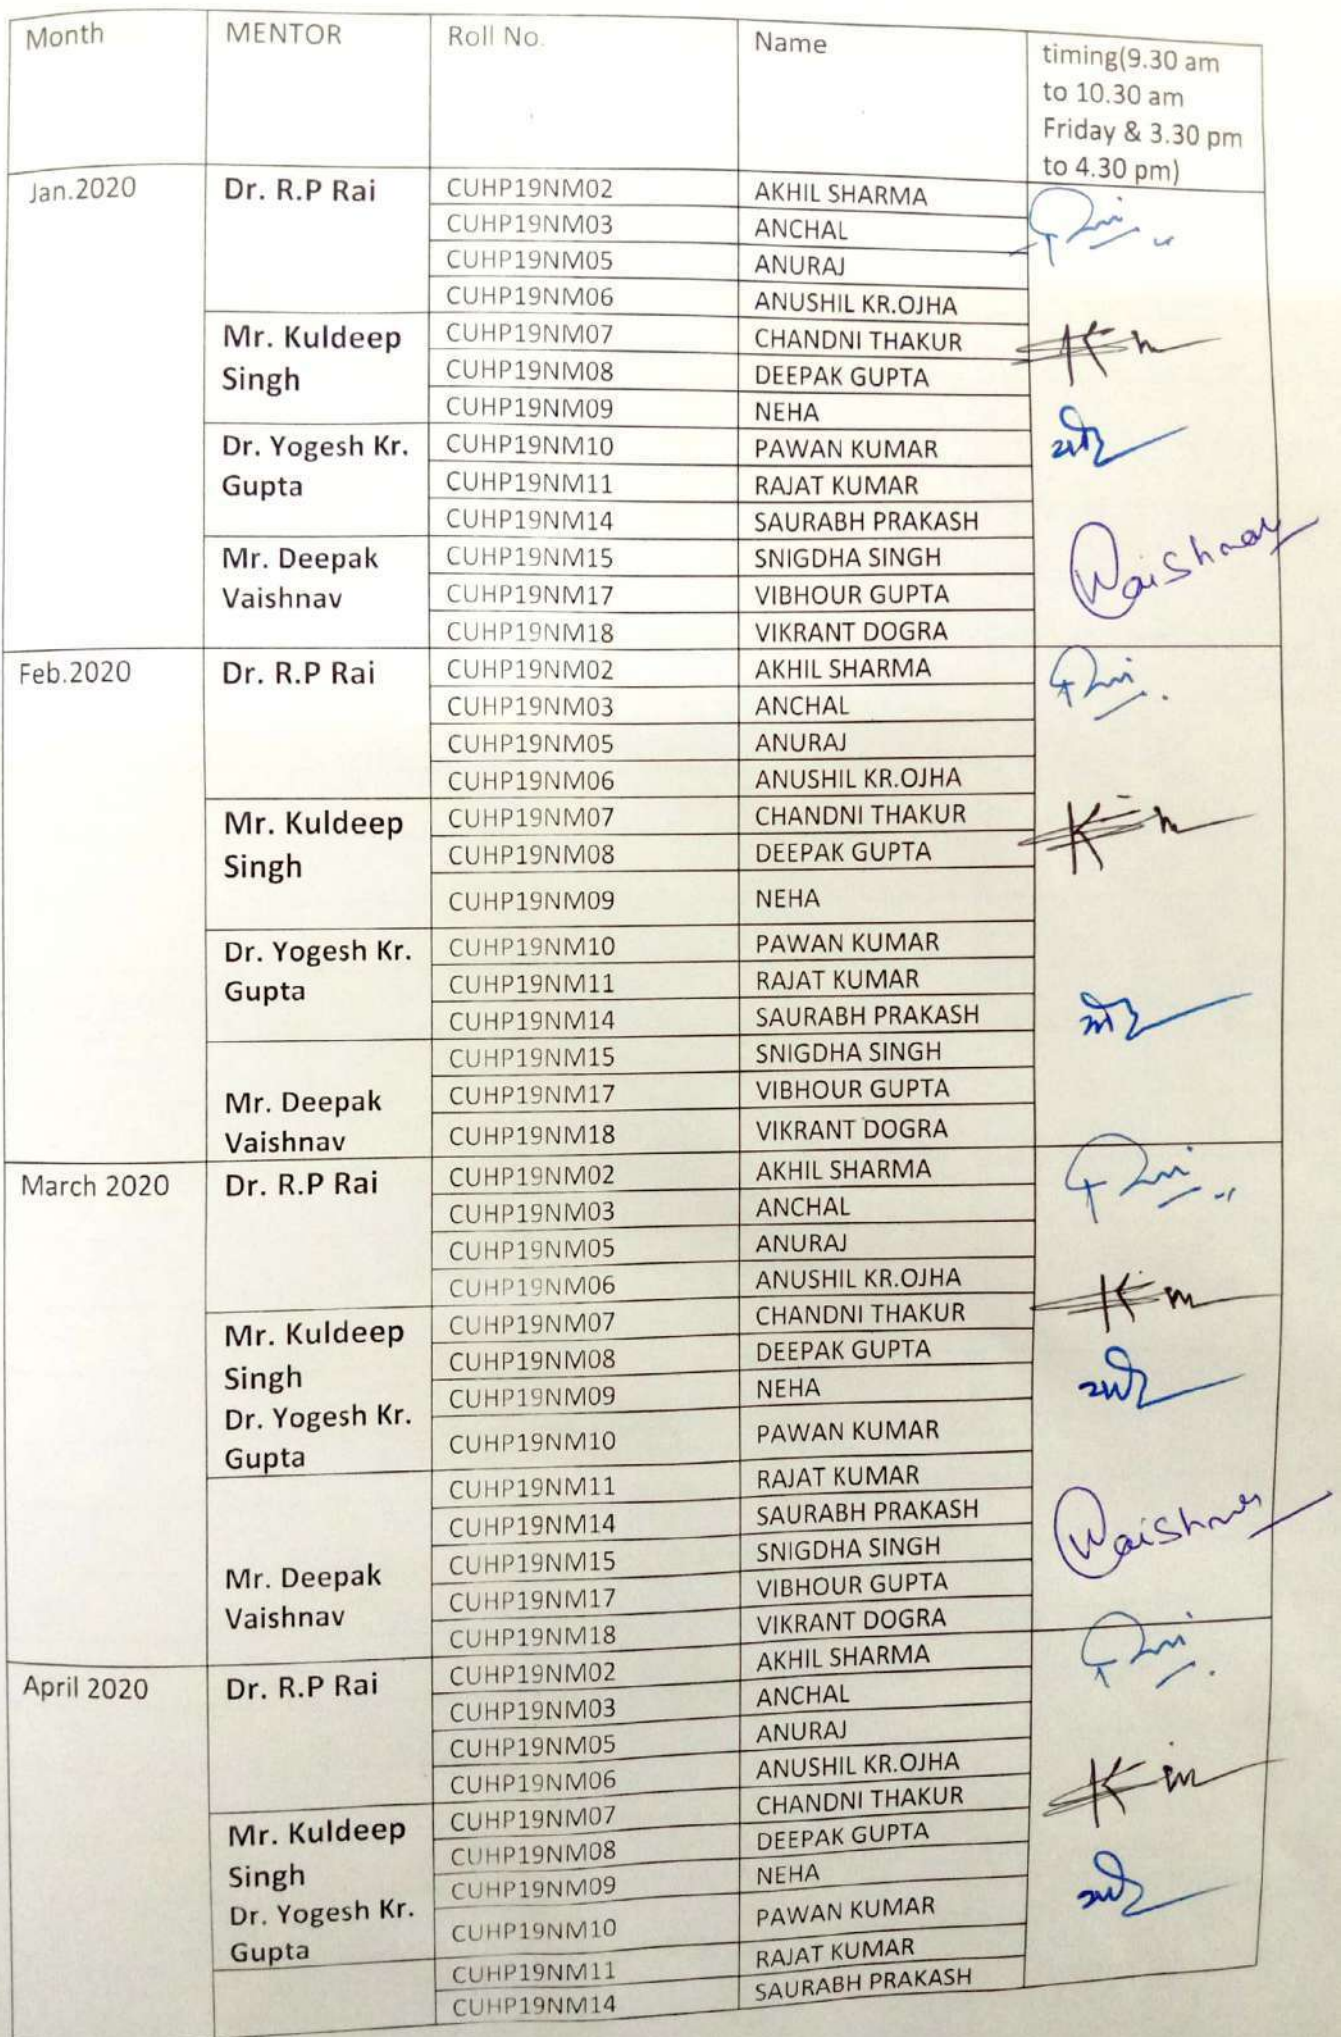 Month MENTOR Roll No. Name timing(9.30 am
to 10.30 am
Friday & 3.30 pm
to 4.30 pm)
Jan.2020 Dr. R.P Rai CUHP19NM02 AKHIL SHARMA
CUHP19NM03 ANCHAL
CUHP19NM05 ANURAJ
CUHP19NM06 ANUSHIL KR.OJHA
Mr. Kuldeep CUHP19NM07 CHANDNI THAKUR
Singh CUHP19NM08 DEEPAK GUPTA
CUHP19NM09 NEHA
Dr. Yogesh Kr. CUHP19NM10 PAWAN KUMAR
Gupta CUHP19NM11 RAJAT KUMAR
CUHP19NM14 SAURABH PRAKASH
Mr. Deepak CUHP19NM15 SNIGDHA SINGH
Vaishnav CUHP19NM17 VIBHOUR GUPTA
CUHP19NM18 VIKRANT DOGRA
Feb.2020 Dr. R.P Rai CUHP19NM02 AKHIL SHARMA
CUHP19NM03 ANCHAL
CUHP19NM05 ANURAJ
CUHP19NM06 ANUSHIL KR.OJHA
Mr. Kuldeep CUHP19NM07 CHANDNI THAKUR
Singh CUHP19NM08 DEEPAK GUPTA
CUHP19NM09 NEHA
Dr. Yogesh Kr. CUHP19NM10 PAWAN KUMAR
Gupta CUHP19NM11 RAJAT KUMAR
CUHP19NM14 SAURABH PRAKASH
CUHP19NM15 SNIGDHA SINGH
Mr. Deepak CUHP19NM17 VIBHOUR GUPTA
Vaishnav CUHP19NM18 VIKRANT DOGRA
March 2020 Dr. R.P Rai CUHP19NM02 AKHIL SHARMA
CUHP19NM03 ANCHAL
CUHP19NM05 ANURAJ
CUHP19NM06 ANUSHIL KR.OJHA
Mr. Kuldeep CUHP19NM07 CHANDNI THAKUR
Singh CUHP19NM08 DEEPAK GUPTA
Dr. Yogesh Kr. CUHP19NM09 NEHA
Gupta CUHP19NM10 PAWAN KUMAR
CUHP19NM11 RAJAT KUMAR
CUHP19NM14 SAURABH PRAKASH
CUHP19NM15 SNIGDHA SINGH
Mr. Deepak CUHP19NM17 VIBHOUR GUPTA
Vaishnav CUHP19NM18 VIKRANT DOGRA
April 2020 Dr. R.P Rai CUHP19NM02 AKHIL SHARMA
CUHP19NM03 ANCHAL
CUHP19NM05 ANURAJ
CUHP19NM06 ANUSHIL KR.OJHA
Mr. Kuldeep CUHP19NM07 CHANDNI THAKUR
Singh CUHP19NM08 DEEPAK GUPTA
Dr. Yogesh Kr. CUHP19NM09 NEHA
Gupta CUHP19NM10 PAWAN KUMAR
CUHP19NM11 RAJAT KUMAR
CUHP19NM14 SAURABH PRAKASH